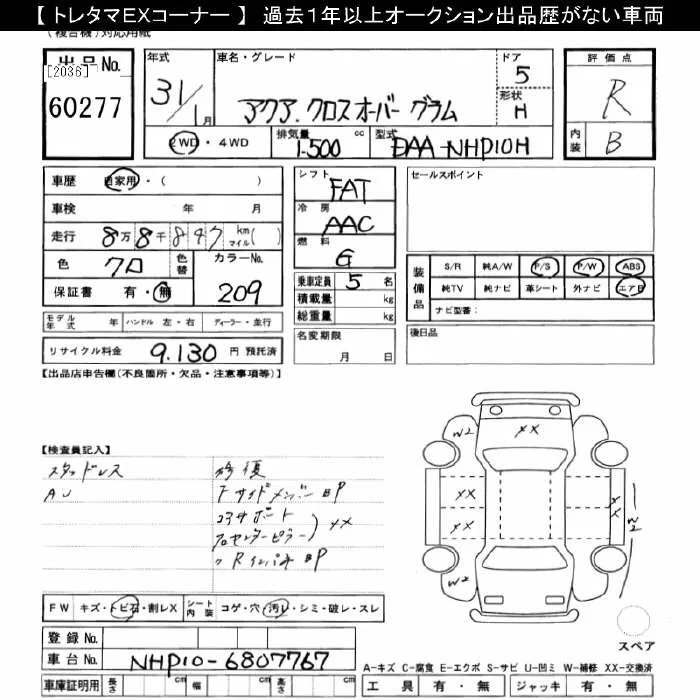 【 トレタマEXコーナー 】 過去1年以上オークション出品歴がない車両
(複合機)対応用紙
出品No.
[2036]
60277
年式
31/1月
2WD・4WD
車名・グレード
アクア.クロスオーバー グラム
ドア
5
形状
H
排気量
1-500 cc
型式
DAA-NHP10H
評価点
R
内装
B
車歴 自家用・( )
車検 年 月
走行 8万8千847 km マイル( )
色 クロ
色替
カラーNo.
209
保証書 有・無
モデル年式 年
ハンドル 左・右
ディーラー・並行
リサイクル料金 9.130 円 預託済
シフト
FAT
冷房
AAC
燃料
G
乗車定員 5 名
積載量 kg
総重量 kg
名変期限
月 日
セールスポイント
装備品
S/R 純A/W P/S P/W ABS
純TV 純ナビ 革シート 外ナビ エアB
ナビ型番:
後日品
【出品店申告欄(不良箇所・欠品・注意事項等)】
【検査員記入】
スタッドレス
AJ
修復
FサイドメンバーBP
コアサポート
右センターピラー
XX
〃RインパネBP
W2
XX
XX
XX
XX
W2
W2
スペア
FW キズ・トビ石・割レX
シート内装 コゲ・穴・汚レ・シミ・破レ・スレ
登録No.
車台No. NHP10-6807767
車庫証明用 長さ cm 幅 cm 高さ cm
A-キズ C-腐食 E-エクボ S-サビ U-凹ミ W-補修 XX-交換済
工具 有・無 ジャッキ 有・無